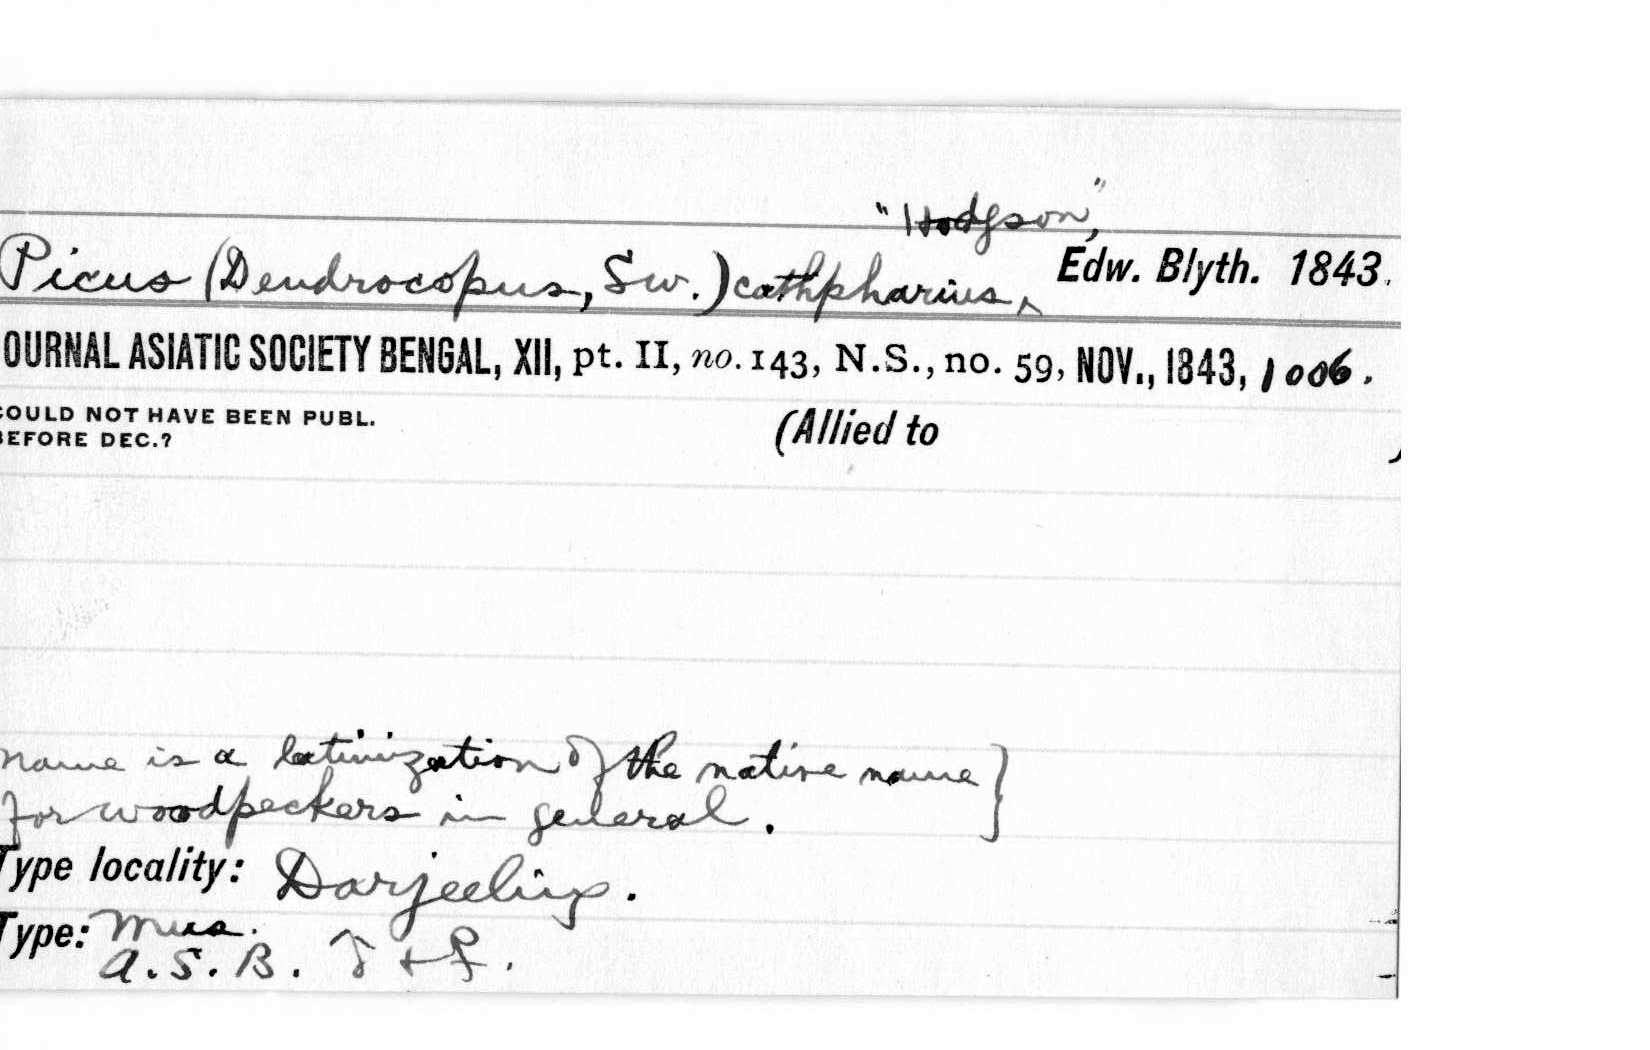 "Hodgson",
Picus (Dendrocopus, Sw.) cathpharius, ^ Edw. Blyth. 1843.
OURNAL ASIATIC SOCIETY BENGAL, XII, pt. II, no. 143, N.S., no. 59, NOV., 1843, 1006.
COULD NOT HAVE BEEN PUBL.
BEFORE DEC.? (Allied to )
name is a latinization of the native name }
for woodpeckers in general.
Type locality: Darjeeling.
Type: Mus.
A.S.B. ♂ + ♀.